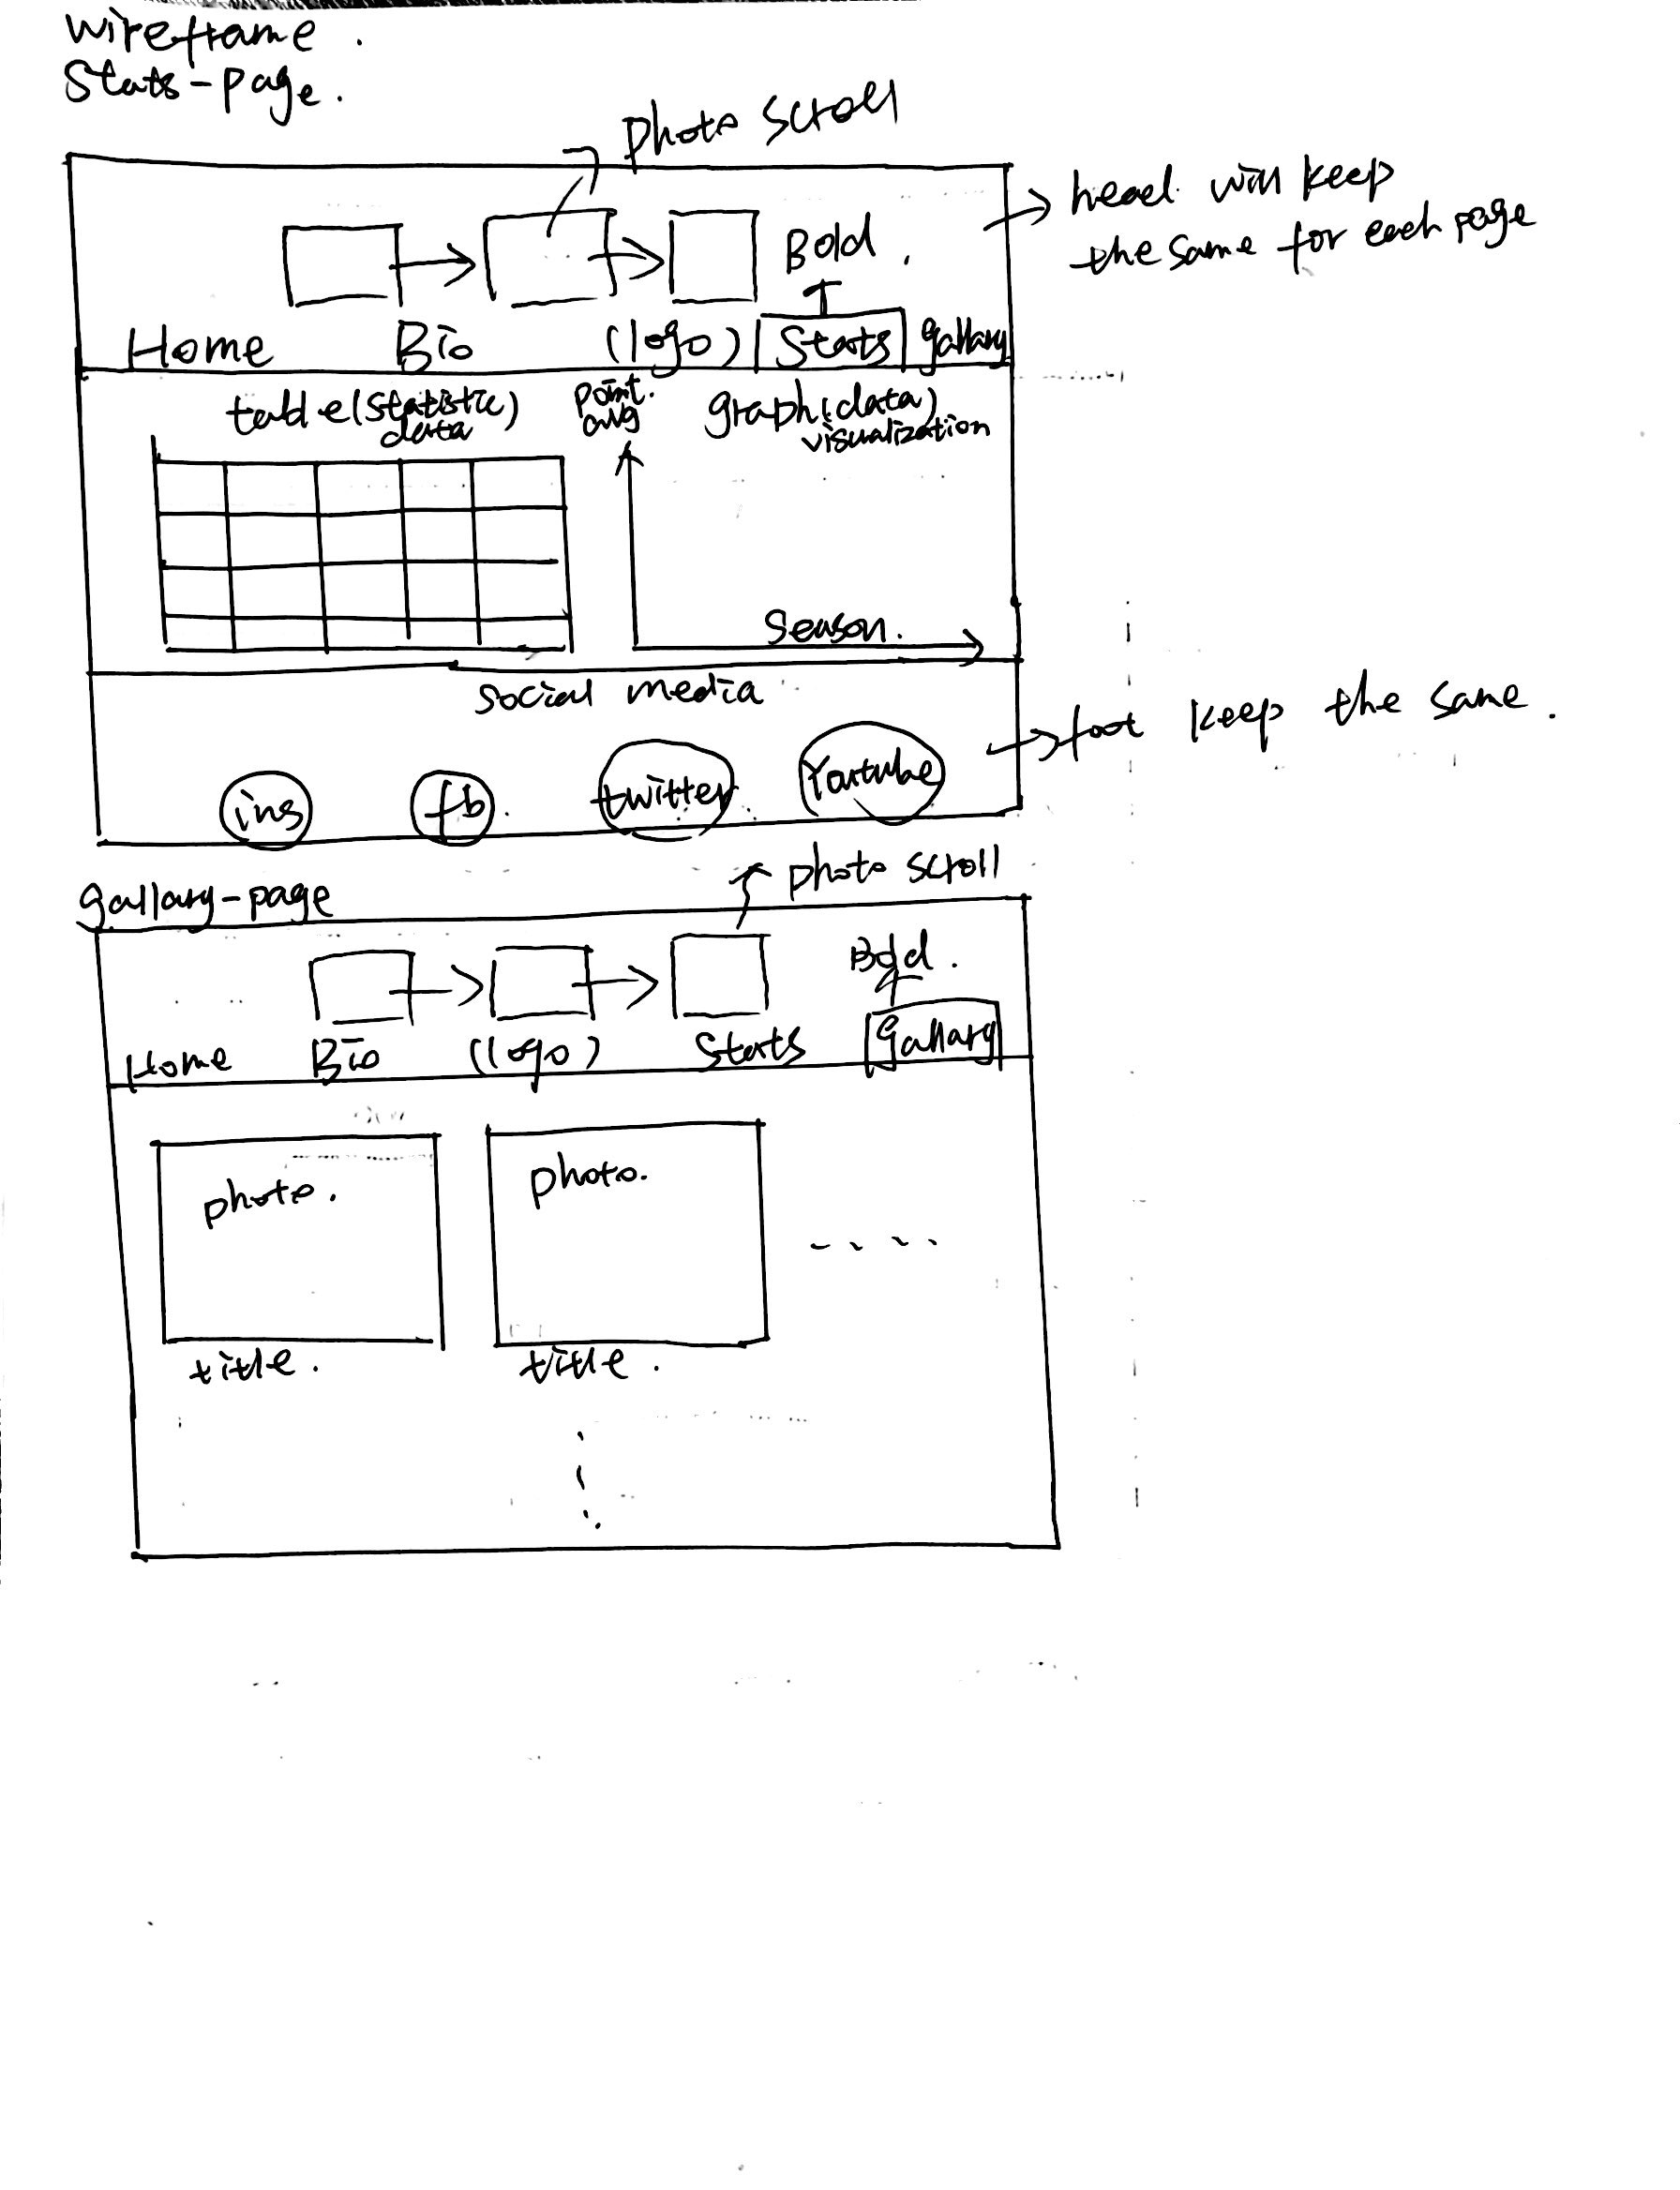 wireframe.
Stats-page.
photo scroll
head will keep
the same for each page
Bold.
Home Bio (logo) Stats gallary
table(statistic data)
point. avg
graph(data) visualization
Season.
social media
foot keep the same.
ins fb. twitter Youtube
gallary-page
photo scroll
Bold.
Home Bio (logo) Stats gallary
photo. photo.
title. title.